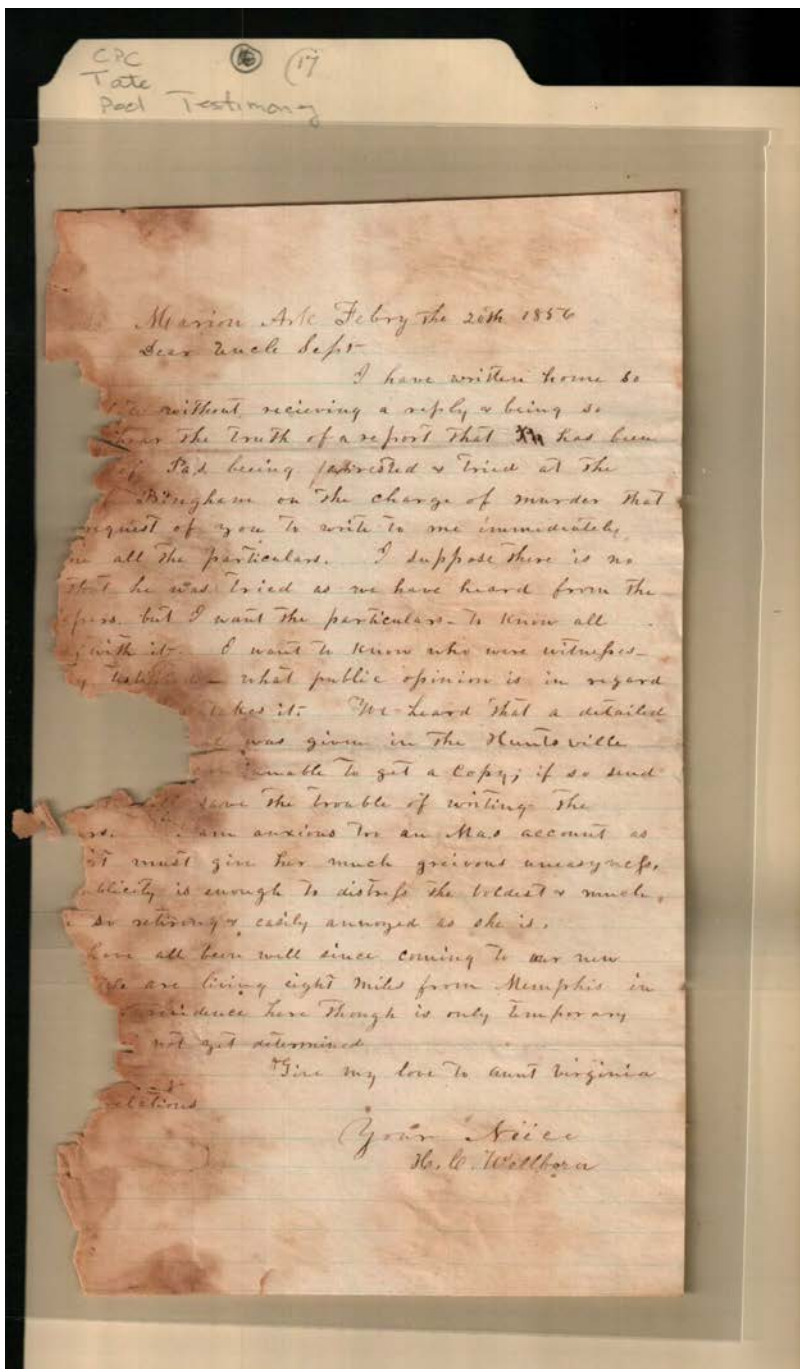 CPC 16 (17
Tate
Pod Testimony
Marion Ark Febry the 20th 1856
Dear Uncle Sept
I have written home so
without recieving a reply & being so
hear the truth of a report that has been
of Pa's being arrested & tried at the
Bingham on the charge of murder that
request of you to write to me immediately,
me all the particulars. I suppose there is no
that he was tried as we have heard from the
but I want the particulars - to know all
with it - I want to know who were witnesses -
what public opinion is in regard
takes it. We heard that a detailed
was given in the Huntsville
unable to get a Copy; if so send
save the trouble of writing the
am anxious too on Mas account as
it must give her much greivous uneasyness,
publicity is enough to distress the boldest & much,
so retiring & easily annoyed as she is.
have all been well since coming to our new
We are living eight miles from Memphis in
residence here though is only temporary
not yet determined
Give my love to aunt Virginia
relations
Your Neice
H. C. Wellborn